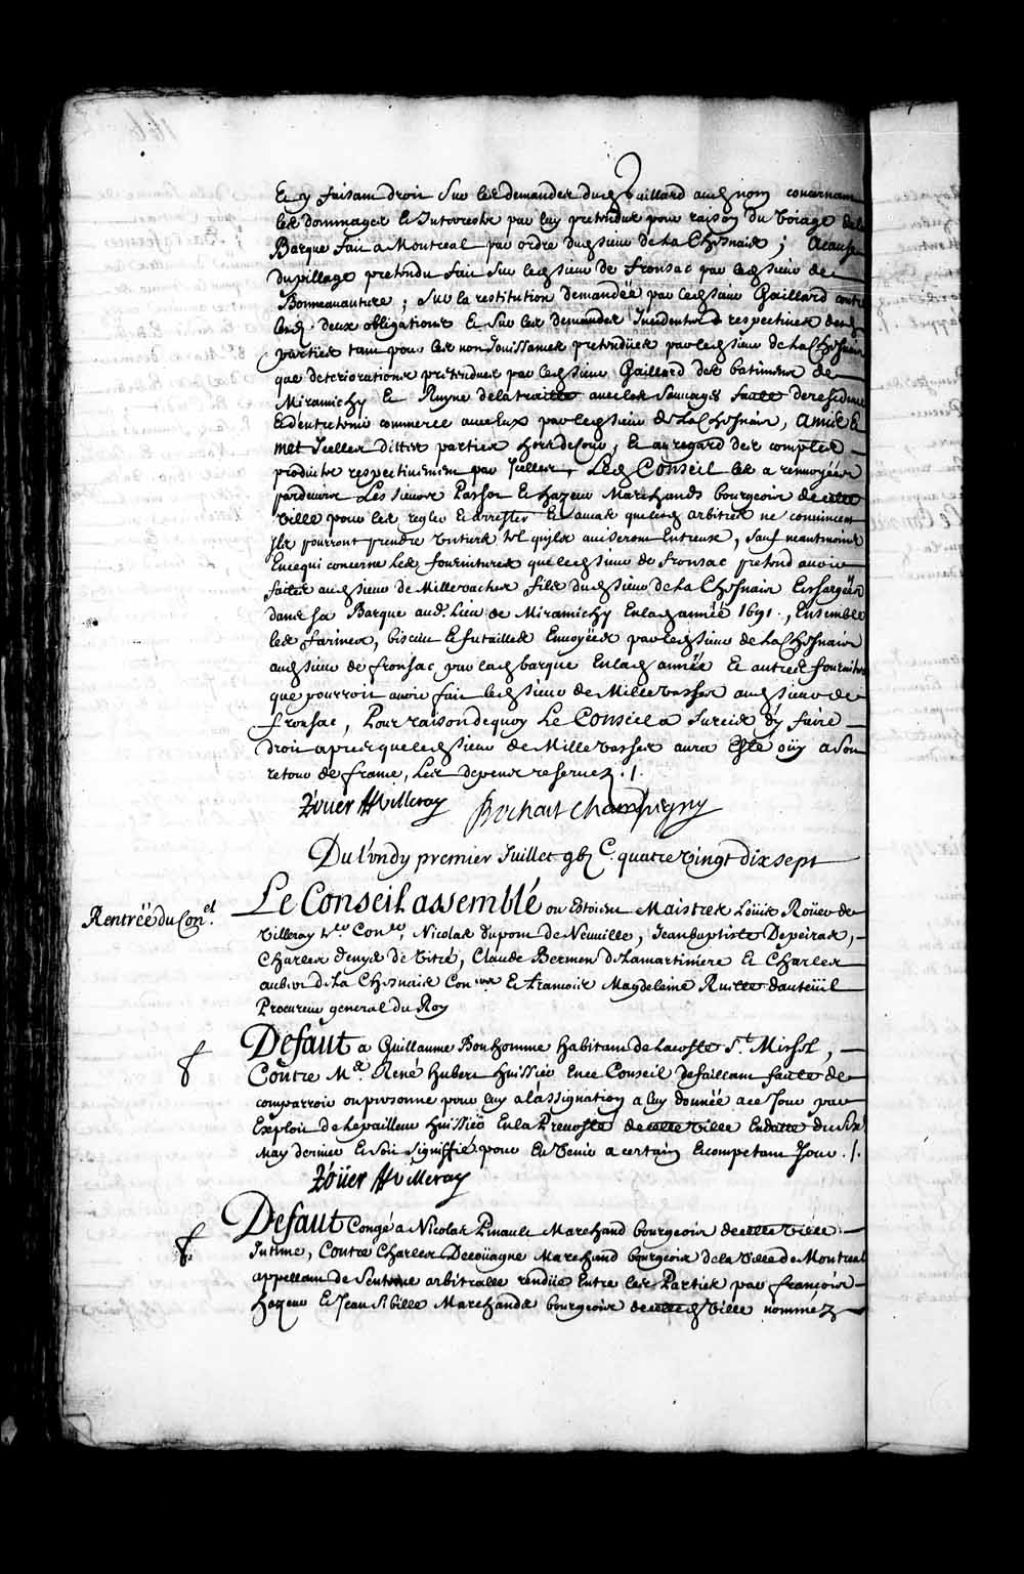 Et y faisant droit sur les demandes dud Gaillard aud nom concernant
les dommages et Interestz par luy pretendus pour raison du voiage de la
Barque fait a Montreal par ordre dud sieur de la Chesnaie ; Acause
du pillage pretendu fait sur led sieur de fronsac par led sieur de
Bonneauanture ; sur la restitution demandée par led sieur Gaillard contre
deux obligations Et sur les demandes Incidentes respectiues desd
parties tant pour les non Jouissances pretendües par led sieur de la Chesnaie
que deteriorations pretendues par led sieur Gaillard des batimens de
Miramichy Et Ruyne de la traitte auec les sauuages faute de residence
Et d'entretenir commerce auec Eux par led sieur de la Chesnaie, a mis Et
met Icelles dittes parties hors de Cour, Et au regard des comptes
produits respectiuement par Icelles, Led Conseil les a renuoyées
pardeuant Les sieurs Passot Et hazeur Marchands bourgeois de cette
ville pour les regler Et arrester Et au cas que lesd arbitres ne conuinssent
Ilz pourront prendre un tiers tel qu'ilz auiseront Entreux, sauf neantmoins
En ce qui concerne Les fournitures que led sieur de fronsac pretend auoir
faites aud sieur de Milleuaches fils dud sieur de la Chesnaie Et chargées
dans sa Barque aud. Lieu de Miramichy En lad année 1691., Ensemble
les farines, biscuit Et futailles Enuoyées par led sieur de la Chesnaie
aud sieur de fronsac par lad barque En lad année Et autres fournitures
que pourroit auoir fait led sieur de Milleuaches aud sieur de
fronsac, Pour raison de quoy Le Conseil a surcis d'y faire
droit apres que led sieur de Milleuaches aura Esté oüy a son
retour de france, Les depens reseruez ./.
Roüer Villeray Bochart Champigny
Du Lundy premier Juillet gbj C. quatre vingt dix sept
Rentrëe du Conel.
Le Conseil assemblé ou Estoient Maistres Loüis Roüer de
Villeray 1er Coner, Nicolas dupont de Neuuille, Jean baptiste Depeiras,
Charles denys de Vitré, Claude Bermen de Lamartiniere Et Charles
aubert de La Chesnaie Coners Et francois Magdeleine Ruette dauteüil
Procureur general du Roy
Defaut a Guillaume Bonhomme habitant de la coste St. Michel,
Contre Me. René hubert huissier En ce Conseil defaillant faute de
comparroir ou personne pour luy a lássignation a luy donnée a ce Jour par
Exploit de Lepailleur huissier En la Preuosté de cette ville En datte du six
May dernier Et soit signiffié pour En venir a certain Et competant Jour ./.
Roüer Villeray
Defaut Congé a Nicolas Pinault Marchand bourgeois de cette ville
Intimé, Contre Charles Decoüagne Marchand bourgeois de la ville de Montreal
appellant de Sentence arbitralle rendüe Entre les Parties par françois
hazeur Et Jean Sibille Marchands bourgeois de cetted ville nomméz